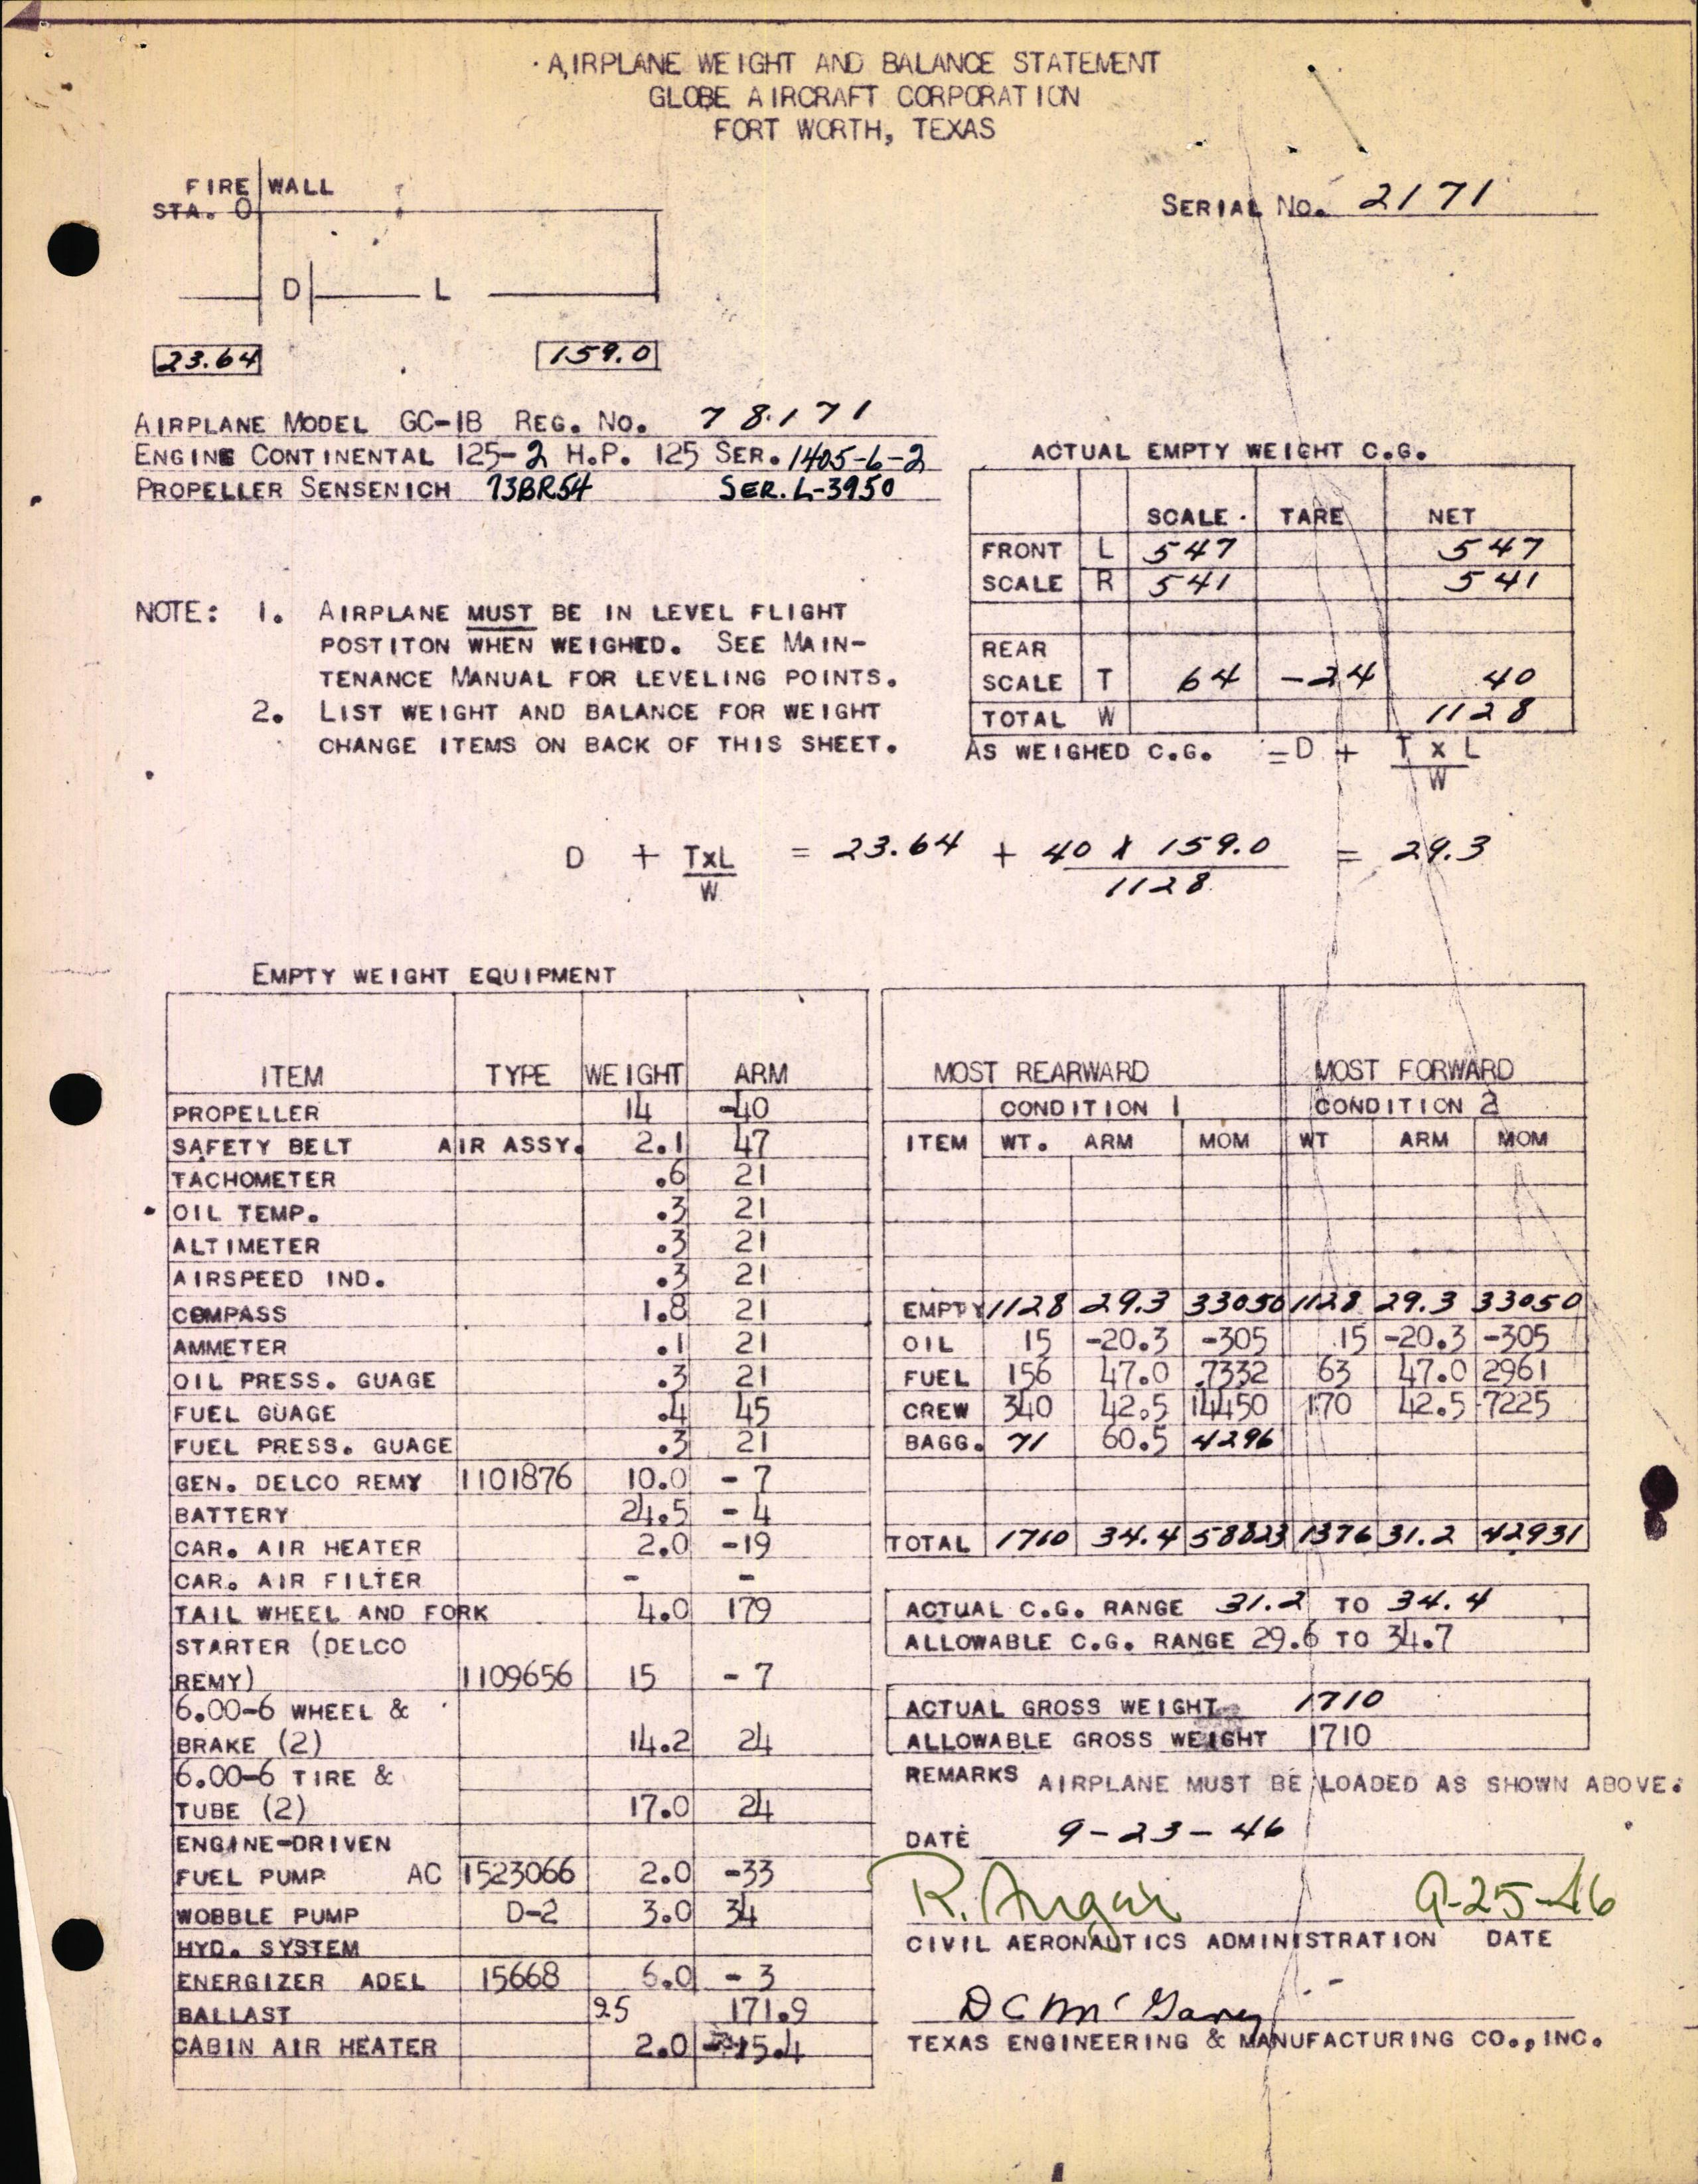 AIRPLANE WEIGHT AND BALANCE STATEMENT
GLOBE AIRCRAFT CORPORATION
FORT WORTH, TEXAS
FIRE WALL
STA. 0
SERIAL NO. 2171
D L
23.64 159.0
AIRPLANE MODEL GC-1B REG. NO. 78171
ENGINE CONTINENTAL 125-2 H.P. 125 SER. 1405-6-2
PROPELLER SENSENICH 73BR54 SER. L-3950
ACTUAL EMPTY WEIGHT C.G.
SCALE TARE NET
FRONT L 547 547
SCALE R 541 541
REAR
SCALE T 64 -24 40
TOTAL W 1128
AS WEIGHED C.G. = D + T x L
W
NOTE: 1. AIRPLANE MUST BE IN LEVEL FLIGHT
POSTITON WHEN WEIGHED. SEE MAIN-
TENANCE MANUAL FOR LEVELING POINTS.
2. LIST WEIGHT AND BALANCE FOR WEIGHT
CHANGE ITEMS ON BACK OF THIS SHEET.
D + TxL = 23.64 + 40 X 159.0 = 29.3
W 1128
EMPTY WEIGHT EQUIPMENT
ITEM TYPE WEIGHT ARM
PROPELLER 14 -40
SAFETY BELT AIR ASSY. 2.1 47
TACHOMETER .6 21
OIL TEMP. .3 21
ALTIMETER .3 21
AIRSPEED IND. .3 21
COMPASS 1.8 21
AMMETER .1 21
OIL PRESS. GUAGE .3 21
FUEL GUAGE .4 45
FUEL PRESS. GUAGE .3 21
GEN. DELCO REMY 1101876 10.0 - 7
BATTERY 24.5 - 4
CAR. AIR HEATER 2.0 -19
CAR. AIR FILTER - -
TAIL WHEEL AND FORK 4.0 179
STARTER (DELCO
REMY) 1109656 15 - 7
6.00-6 WHEEL &
BRAKE (2) 14.2 24
6.00-6 TIRE &
TUBE (2) 17.0 24
ENGINE-DRIVEN
FUEL PUMP AC 1523066 2.0 -33
WOBBLE PUMP D-2 3.0 34
HYD. SYSTEM
ENERGIZER ADEL 15668 6.0 - 3
BALLAST 25 171.9
CABIN AIR HEATER 2.0
MOST REARWARD MOST FORWARD
CONDITION 1 CONDITION 2
ITEM WT. ARM MOM WT ARM MOM
EMPTY 1128 29.3 33050 1128 29.3 33050
OIL 15 -20.3 -305 15 -20.3 -305
FUEL 156 47.0 7332 63 47.0 2961
CREW 340 42.5 14450 170 42.5 7225
BAGG. 71 60.5 4296
TOTAL 1710 34.4 58823 1376 31.2 42931
ACTUAL C.G. RANGE 31.2 TO 34.4
ALLOWABLE C.G. RANGE 29.6 TO 34.7
ACTUAL GROSS WEIGHT 1710
ALLOWABLE GROSS WEIGHT 1710
REMARKS AIRPLANE MUST BE LOADED AS SHOWN ABOVE.
DATE 9-23-46
R. 9-25-46
CIVIL AERONAUTICS ADMINISTRATION DATE
D C
TEXAS ENGINEERING & MANUFACTURING CO., INC.